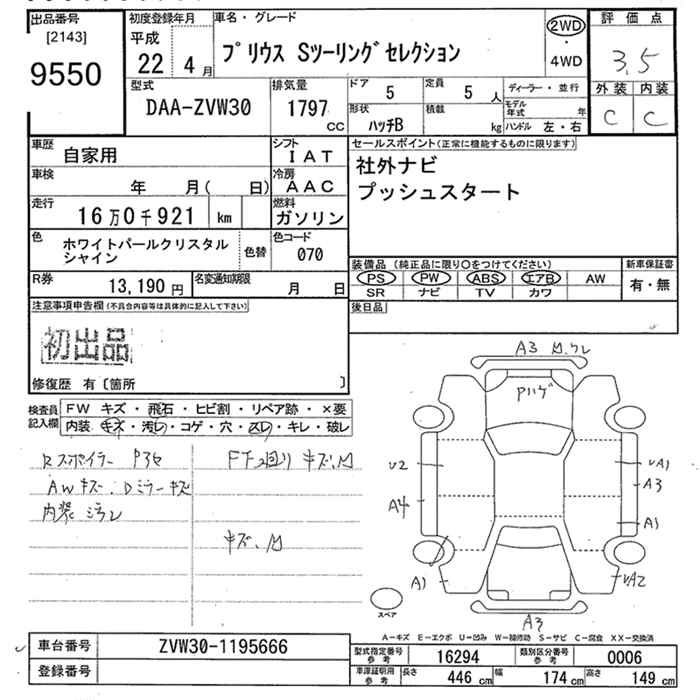 出品番号
[2143]
9550
初度登録年月
平成
22 4 月
車名・グレード
プリウス Sツーリングセレクション
2WD
・
4WD
評価点
3.5
外装 内装
C C
型式
DAA-ZVW30
排気量
1797
CC
ドア
5
定員
5 人
形状
ハッチB
積載
kg
ディーラー・並行
モデル年式 年
ハンドル 左・右
車歴
自家用
シフト
IAT
車検
年 月( 日)
冷房
AAC
走行
16万0千921 km
燃料
ガソリン
色
ホワイトパールクリスタル
シャイン
色替
色コード
070
R券
13,190 円
名変通知期限
月 日
セールスポイント(正常に機能するものに限ります)
社外ナビ
プッシュスタート
装備品 (純正品に限り〇をつけてください)
PS PW ABS エアB AW
SR ナビ TV カワ
新車保証書
有・無
後日品
注意事項申告欄(不具合内容等は具体的に記入して下さい)
初出品
修復歴 有〔箇所 〕
検査員
記入欄
FW キズ・飛石・ヒビ割・リペア跡・×要
内装・キズ・汚レ・コゲ・穴・スレ・キレ・破レ
Rスポイラー P3セ
AWキズ.Dミラーキズ
内装ミラレ
FF廻り キズ、凹
キズ、凹
A3 凹、ワレ
Pハゲ
U2
A4
A1
UA1
A3
A1
UA2
A3
スペア
A-キズ E-エクボ U-凹み W-補修跡 S-サビ C-腐食 XX-交換済
車台番号
ZVW30-1195666
登録番号
型式指定番号
参考
16294
類別区分番号
参考
0006
車庫証明用
参考
長さ 446 cm
幅 174 cm
高さ 149 cm